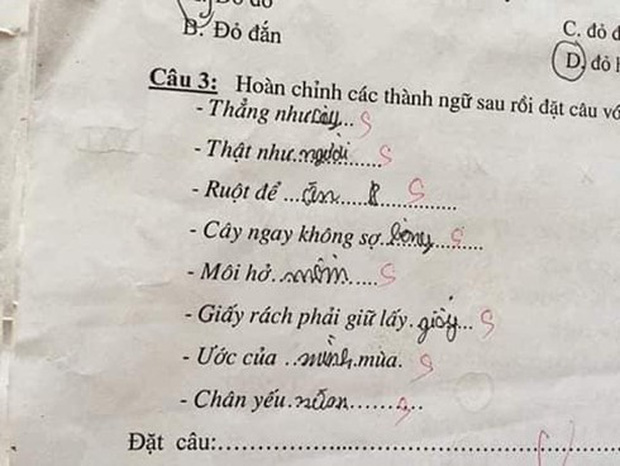 B. Đỏ đắn
C. đỏ đ
D. đỏ
Câu 3: Hoàn chỉnh các thành ngữ sau rồi đặt câu vớ
- Thẳng như cây... S
- Thật như.người...... S
- Ruột để ...ăn..... S
- Cây ngay không sợ......... S
- Môi hở..mồm..... S
- Giấy rách phải giữ lấy.giấy... S
- Ước của ..mình.mùa. S
- Chân yếu.......... S
Đặt câu: